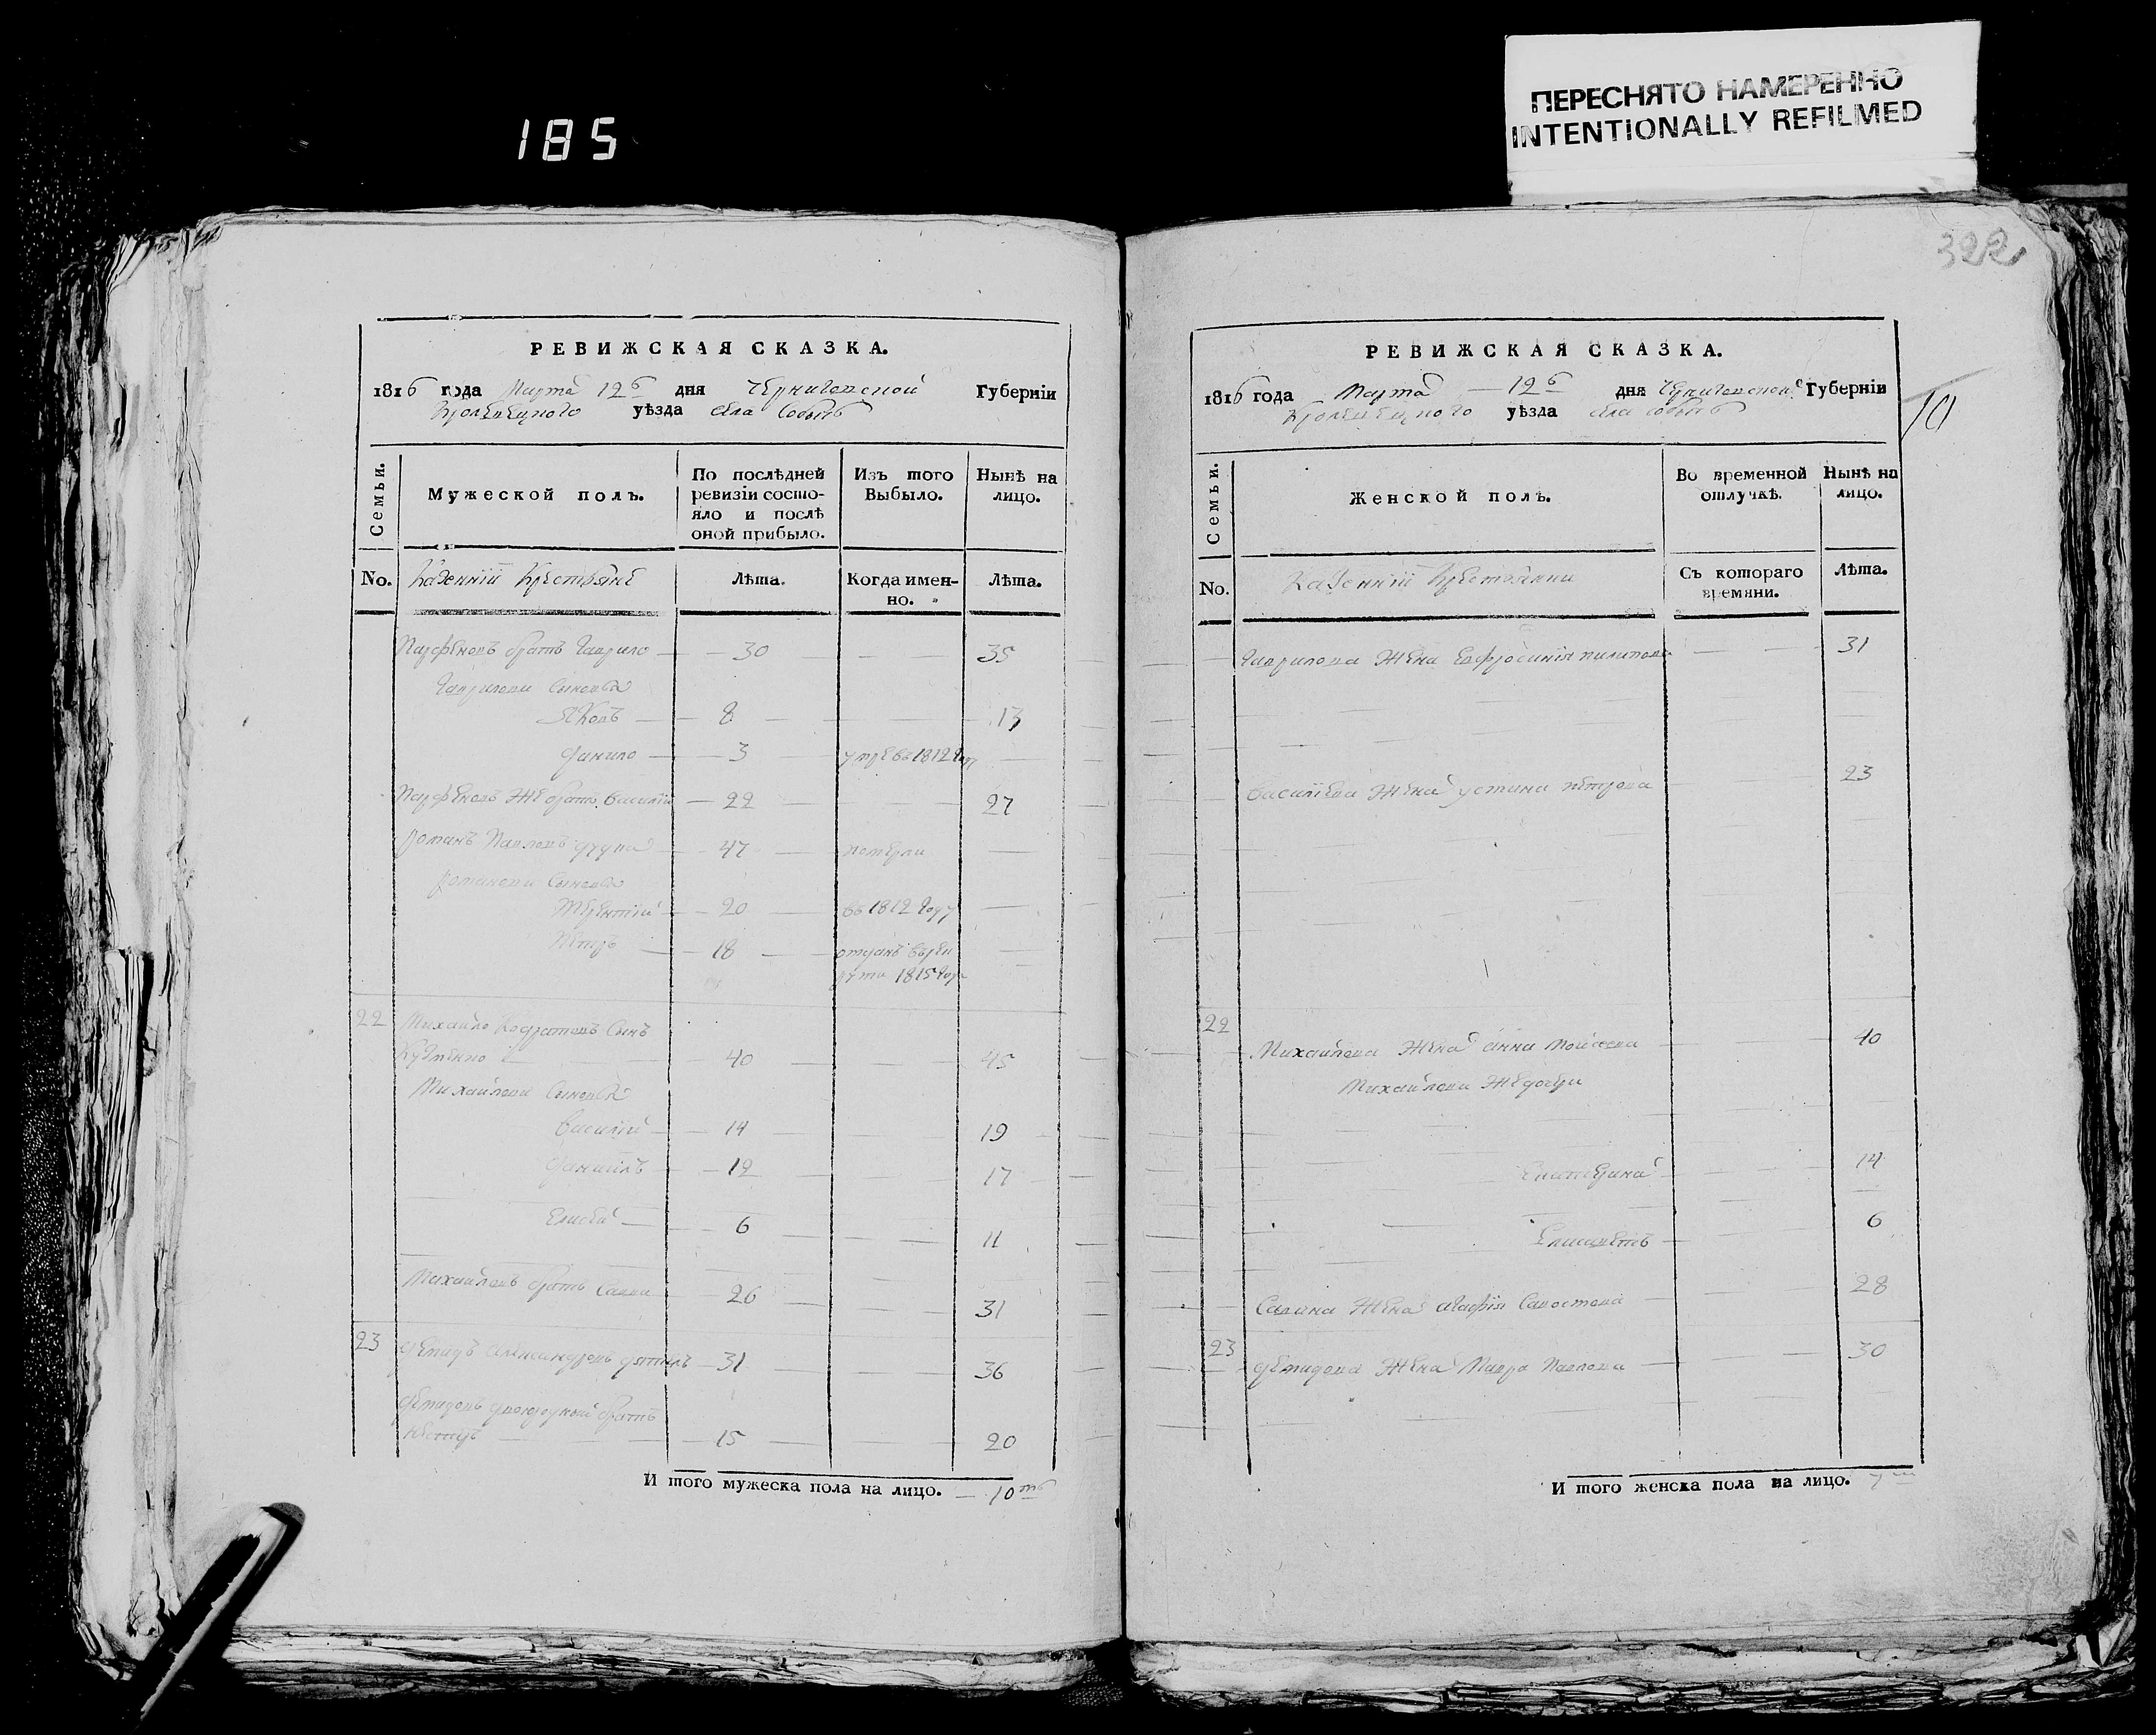 185
ПЕРЕСНЯТО НАМЕРЕННО
INTENTIONALLY REFILMED
322
РЕВИЖСКАЯ СКАЗКА.
1816 года Марта 12 дня Черниговской Губерніи
Кролевецкого уѣзда села
Семьи.
Мужеской полъ.
По послѣдней
ревизіи состо-
яло и послѣ
оной прибыло.
Изъ того
Выбыло.
Нынѣ на
лицо.
No. Казенніи Крестьяне
Лѣта.
Когда имен-
но.
Лѣта.
Парфеновъ братъ Гаврило 30 35
Гавриловы Сыновья
Яковъ 8 13
Данило 3 умре въ 1812 году
Парфеновъ же братъ Василій 22 27
Романъ Павловъ 47 померли
Романовы Сыновья
Терентій 20 въ 1812 году
Петръ 18 отданъ въ рек
рута 1815 года
22 Михайло Кодратовъ Сынъ
40 45
Михайловы Сыновья
Василій 14 19
Даніилъ 12 17
Елисей 6 11
Михайловъ братъ Савва 26 31
23 Демидъ Александровъ 31 36
Демидовъ двоюродный братъ
15 20
И того мужеска пола на лицо. 10
РЕВИЖСКАЯ СКАЗКА.
1816 года Марта 12 дня Черниговской Губерніи
Кролевецкого уѣзда села
10
Семьи.
Женской полъ.
Во временной
отлучкѣ.
Нынѣ на
лицо.
No. Казенніи Крестьянки
Съ котораго
времяни.
Лѣта.
Гаврилова жена Евфросинія Пилипова 31
Василіева жена Устина Петрова 23
22
Михайлова жена Анна Моисеева 40
Михайловы же дочери
Екатерина 14
Елисаветъ 6
Савина жена Агафія 28
23 Демидова жена Мавра Павлова 30
И того женска пола на лицо. 7